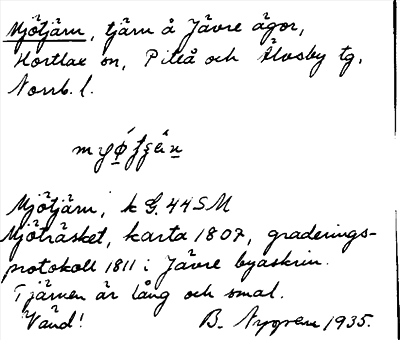 Mjötjärn, tjärn å Jävre ägor,
Hortlax sn, Piteå och Älvsby tg,
Norrb. l.
Mjötjärn, k G. 44 SM
Mjöträsket, karta 1807, graderings-
protokoll 1811 i Jävre byaskrin.
Tjärnen är lång och smal.
Vänd! B. Nygren 1935.